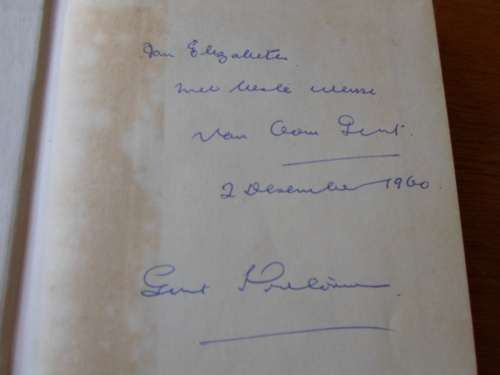 Aan Elizabeth
met beste wense
van Oom Gert.
2 Desember 1960.
Gert